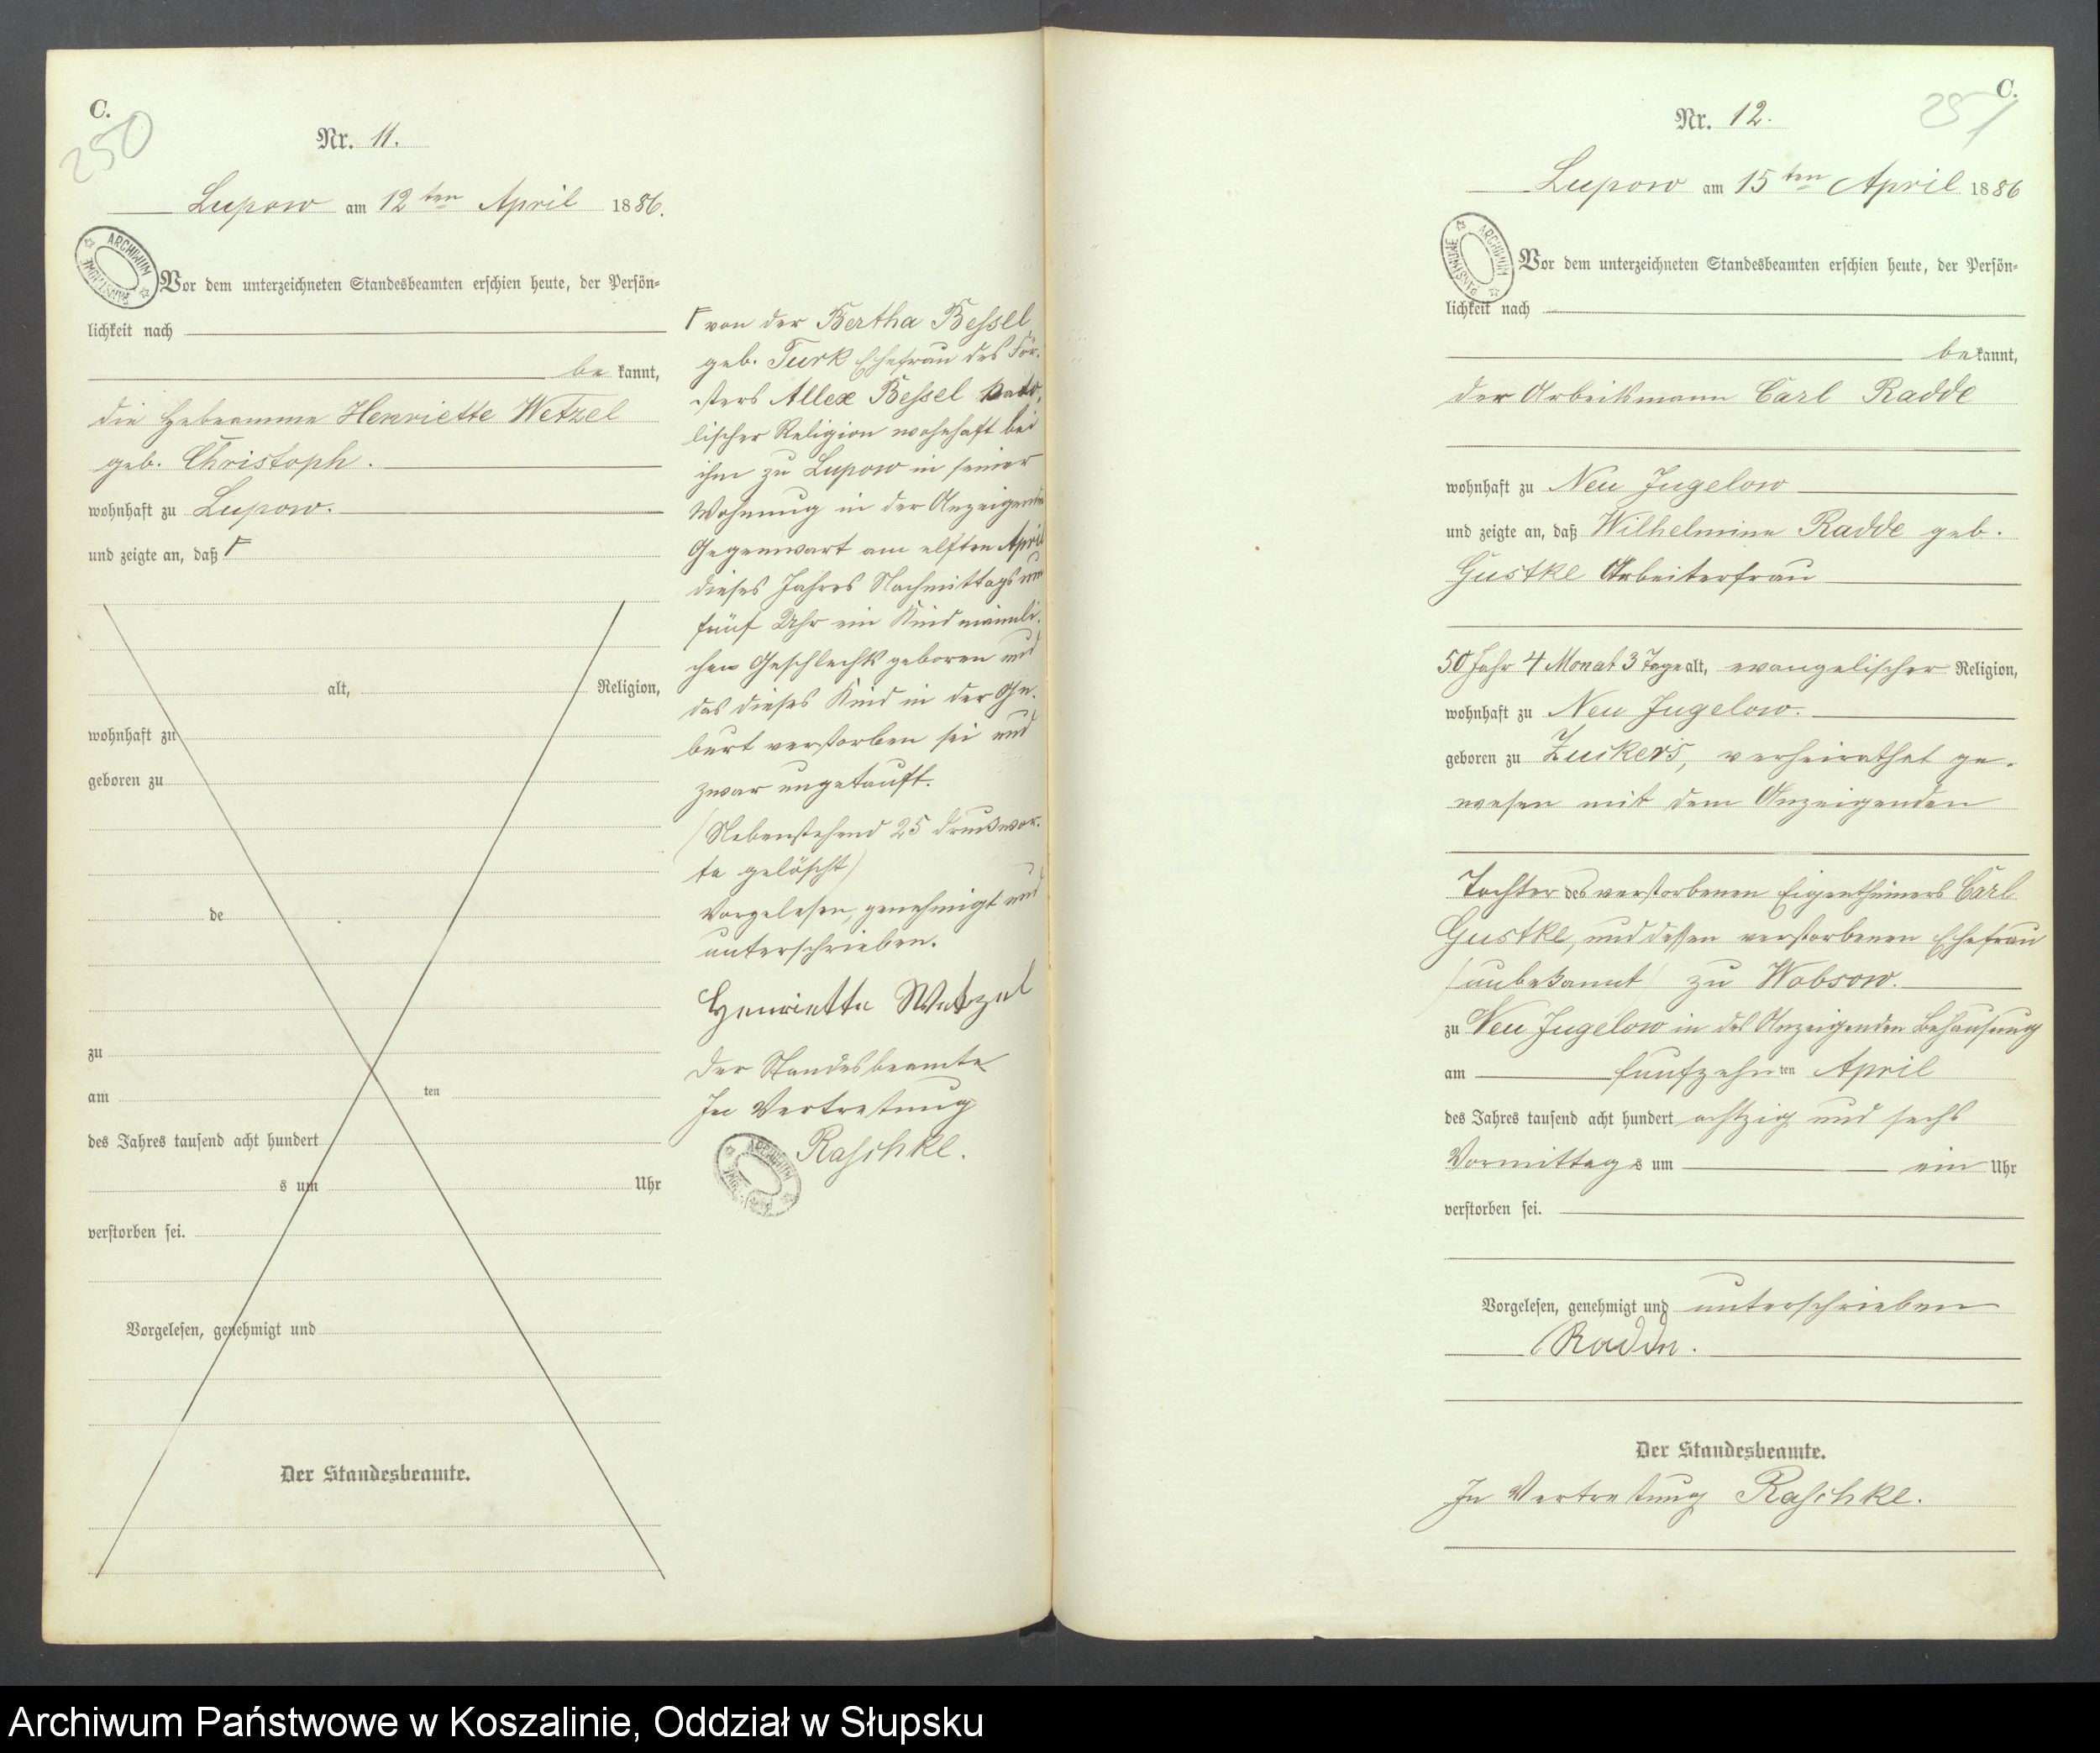 C.
250
Nr. 11.
Lupow am 12ten April 1886.
ARCHIWUM PAŃSTWOWE
Vor dem unterzeichneten Standesbeamten erschien heute, der Persön-
lichkeit nach
be kannt,
die Hebeamme Henriette Wetzel
geb. Christoph.
wohnhaft zu Lupow.
und zeigte an, daß Γ
alt, Religion,
wohnhaft zu
geboren zu
de
zu
am ten
des Jahres tausend acht hundert
s um Uhr
verstorben sei.
Vorgelesen, genehmigt und
Der Standesbeamte.
Γ von der Bertha Bessel
geb. Turk Ehefrau des För-
sters Allex Bessel kato-
lischer Religion wohnhaft bei
ihm zu Lupow in seiner
Wohnung in der Anzeigende
Gegenwart am elften April
dieses Jahres Nachmittags um
fünf Uhr ein Kind männli-
chen Geschlechts geboren und
das dieses Kind in der Ge-
burt verstorben sei und
zwar ungetauft.
(Nebenstehend 25 Druckwor-
te gelöscht)
Vorgelesen, genehmigt und
unterschrieben.
Henriette Wetzel
Der Standesbeamte
In Vertretung
Raschke.
ARCHIWUM
C.
251
Nr. 12.
Lupow am 15ten April 1886
ARCHIWUM PAŃSTWOWE
Vor dem unterzeichneten Standesbeamten erschien heute, der Persön-
lichkeit nach
be kannt,
der Arbeitsmann Carl Radde
wohnhaft zu Neu Jugelow
und zeigte an, daß Wilhelmine Radde geb.
Gustke Arbeiterfrau
50 Jahr 4 Monat 3 Tage alt, evangelischer Religion,
wohnhaft zu Neu Jugelow.
geboren zu Zuckers, verheirathet ge-
wesen mit dem Anzeigenden
Tochter des verstorbenen Eigenthümers Carl
Gustke, und dessen verstorbenen Ehefrau
(unbekannt) zu Wobsow.
zu Neu Jugelow in des Anzeigenden Behausung
am funfzehn ten April
des Jahres tausend acht hundert achtzig und sechs
Vormittag s um ein Uhr
verstorben sei.
Vorgelesen, genehmigt und unterschrieben
Radde.
Der Standesbeamte.
In Vertretung Raschke.
Archiwum Państwowe w Koszalinie, Oddział w Słupsku